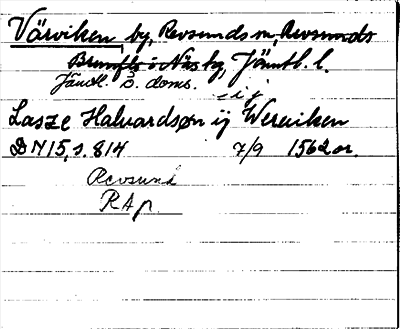 Värviken by, Revsunds sn, Revsunds
Brunflo o Näs tg, Jämtl. l.
Jämtl. Ö. doms.
i ij
Lasze Haluardsøn ij Weruiken
DN 15, s. 814 7/9 1562 or.
Revsund
RAp.